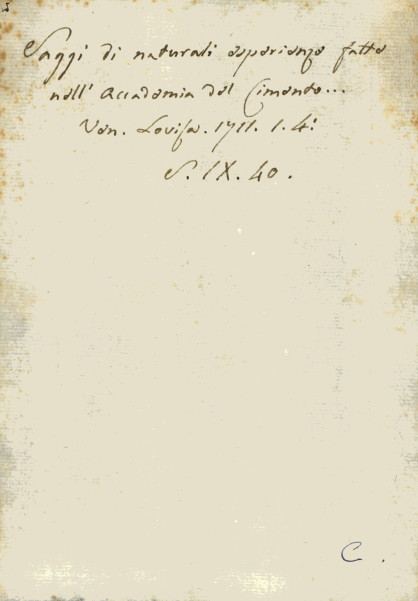 Saggi di naturali esperienze fatte
nell' Accademia del Cimento...
Ven. Lovisa. 1711. 1. 4:
S. IX. 40.
C.